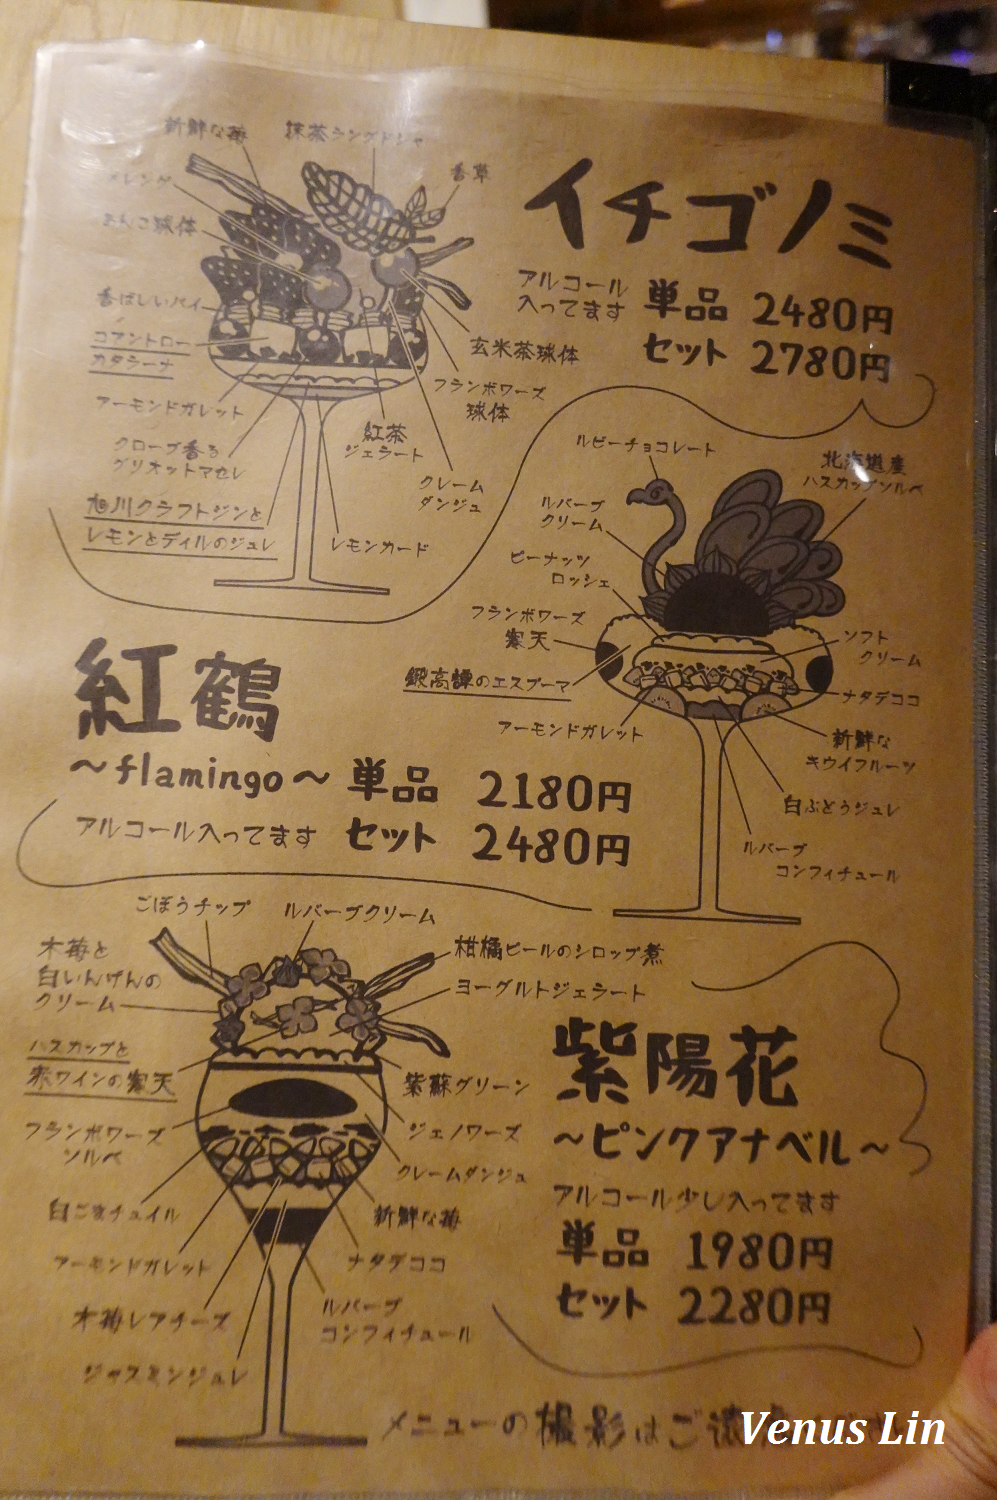 新鮮な苺
抹茶ラングドシャ
メレンゲ
香草
あんこ球体
イチゴノミ
アルコール
入ってます
単品 2480円
セット 2780円
香ばしいパイ
コアントロー
カタラーナ
玄米茶球体
フランボワーズ
球体
アーモンドガレット
紅茶
ジェラート
クローブ香る
グリオットマセレ
クレーム
ダンジュ
旭川クラフトジンと
レモンとディルのジュレ
レモンカード
ルビーチョコレート
北海道産
ハスカップソルベ
ルバーブ
クリーム
ピーナッツ
ロッシェ
フランボワーズ
寒天
ソフト
クリーム
鍛高譚のエスプーマ
ナタデココ
アーモンドガレット
新鮮な
キウイフルーツ
白ぶどうジュレ
ルバーブ
コンフィチュール
紅鶴
～flamingo～
単品 2180円
アルコール入ってます
セット 2480円
ごぼうチップ
ルバーブクリーム
木苺と
白いんげんの
クリーム
柑橘ピールのシロップ煮
ヨーグルトジェラート
ハスカップと
赤ワインの寒天
紫蘇グリーン
フランボワーズ
ソルベ
ジェノワーズ
クレームダンジュ
白ごまチュイル
新鮮な苺
アーモンドガレット
ナタデココ
木苺レアチーズ
ルバーブ
コンフィチュール
ジャスミンジュレ
紫陽花
～ピンクアナベル～
アルコール少し入ってます
単品 1980円
セット 2280円
メニューの撮影はご遠
Venus Lin